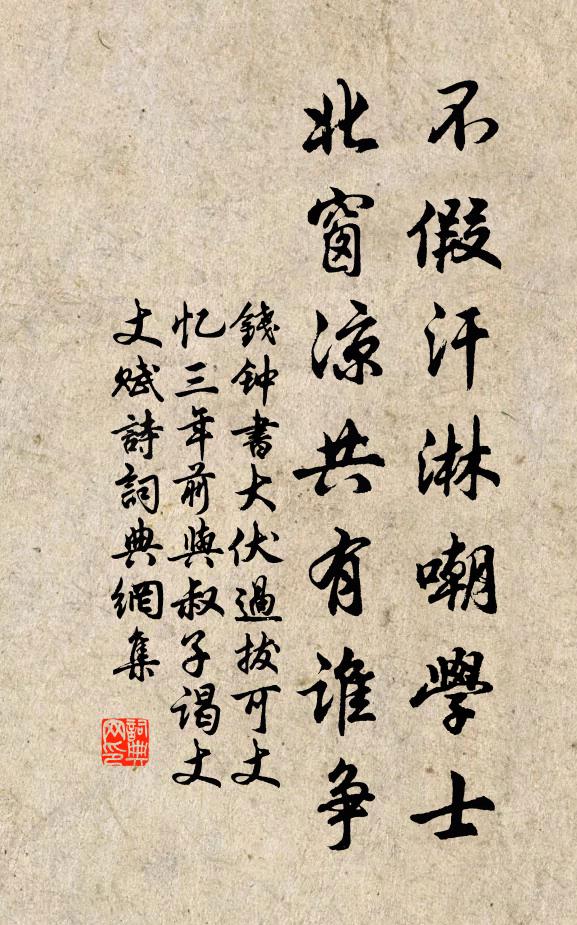 不假汗淋嘲學士
北窗凉共有谁争
錢钟書大伏過拔可丈
忆三年前與叔子谒丈
丈赋詩詞典網集
詞典
网印